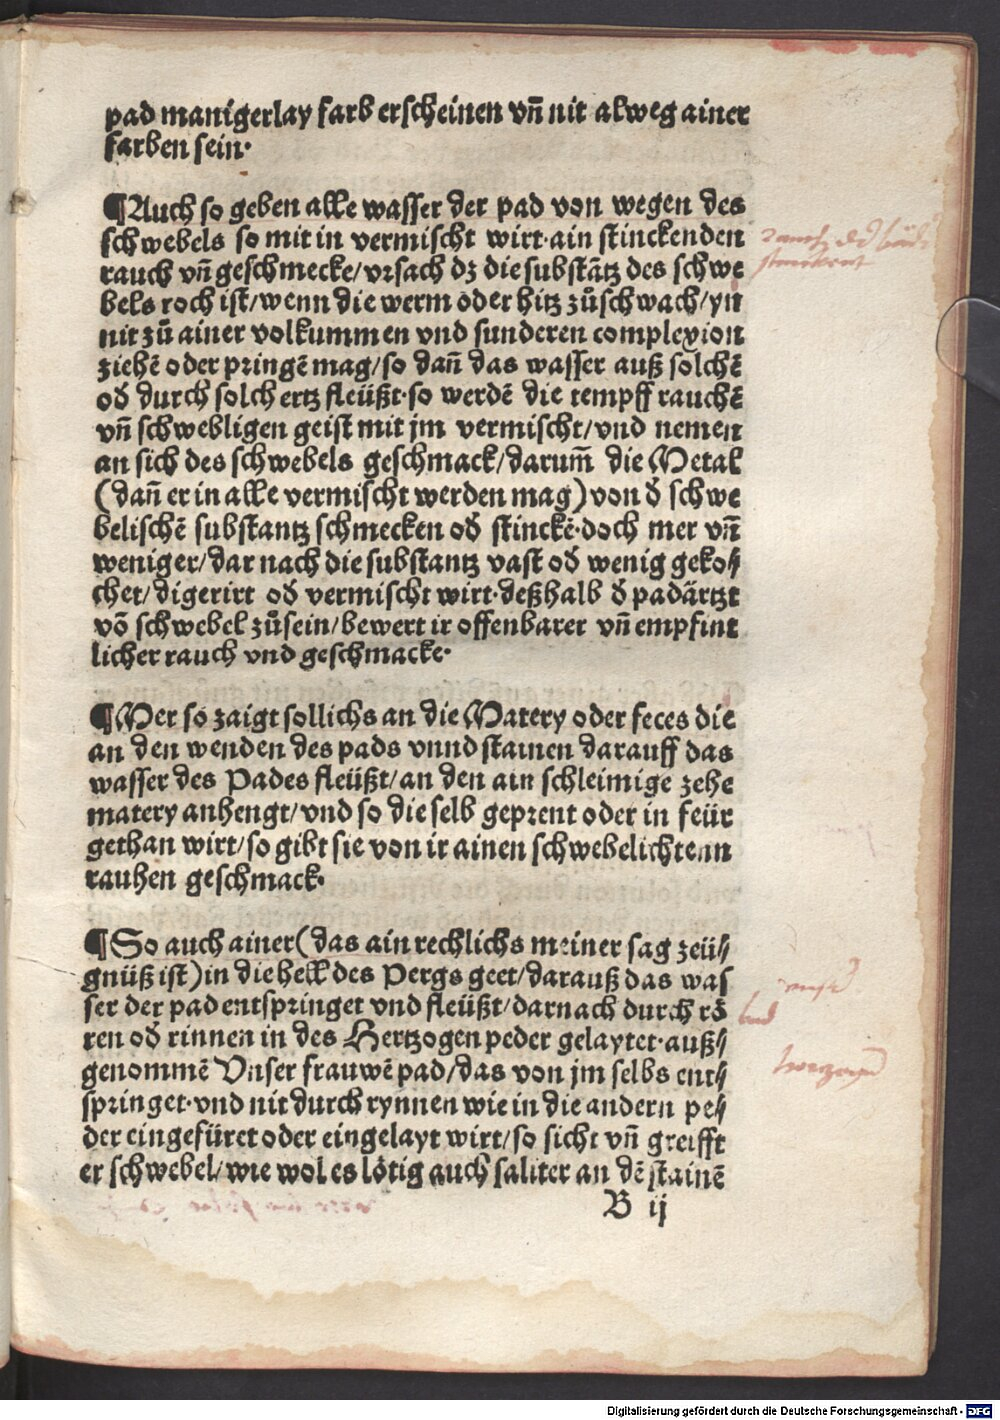 pad manigerlay farb erscheinen vn̄ nit alweg ainer
farben sein·
¶Auch so geben alle wasser der pad von wegen des
schwebels so mit in vermischt wirt·ain stinckenden
rauch vn̄ geschmecke/vrsach dz die substātz des schwe
bels roch ist/wenn die werm oder hitz zůschwach/yn
nit zů ainer volkummen vnd sunderen complexion
ziehē oder pringē mag/so dan̄ das wasser auß solchē
od̄ durch solch ertz fleüßt·so werdē die tempff rauchē
vn̄ schwebligen geist mit jm vermischt/vnd nemen
an sich des schwebels geschmack/darum̄ die Metal
(dan̄ er in alle vermischt werden mag)von d̄ schwe
belischē substantz schmecken od̄ stinckē·doch mer vn̄
weniger/dar nach die substantz vast od̄ wenig geko//
chet/digerirt od̄ vermischt wirt·deßhalb d̄ padärtzt
vō schwebel zůsein/bewert ir offenbarer vn̄ empfint
licher rauch vnd geschmacke·
¶Mer so zaigt sollichs an die Matery oder feces die
an den wenden des pads vnnd stainen darauff das
wasser des Pades fleüßt/an den ain schleimige zehe
matery anhengt/vnd so die selb geprent oder in feür
gethan wirt/so gibt sie von ir ainen schwebelichtenn
rauhen geschmack·
¶So auch ainer(das ain rechlichs meiner sag zeü//
gnüß ist)in die hell des Pergs geet/darauß das was
ser der pad entspringet vnd fleüßt/darnach durch rö
ren od̄ rinnen in des Hertzogen peder gelaytet·auß//
genommē Vnser frauwē pad/das von jm selbs ent//
springet·vnd nit durch rynnen wie in die andern pe//
der eingefüret oder eingelayt wirt/so sicht vn̄ greifft
er schwebel/wie wol es lötig auch saliter an dē stainē
B ij
Digitalisierung gefördert durch die Deutsche Forschungsgemeinschaft - DFG